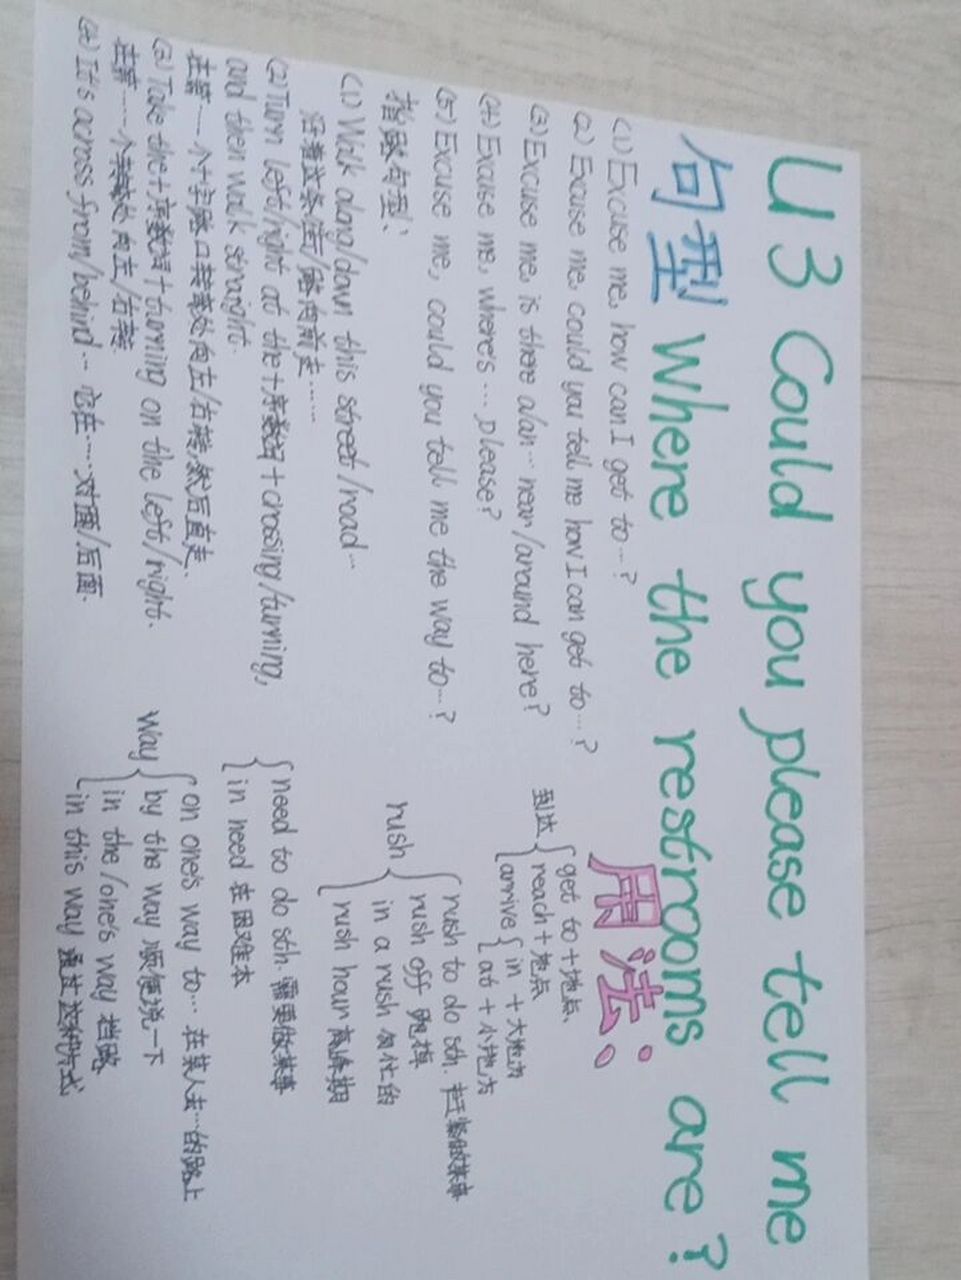 U3 Could you please tell me
where the restrooms are?
句型
(1) Excuse me, how can I get to…?
(2) Excuse me, could you tell me how I can get to…?
(3) Excuse me, is there a/an… near/around here?
(4) Excuse me, where's… please?
(5) Excuse me, could you tell me the way to…?
指路句型:
(1) Walk along/down this street/road…
沿着这条街/路向前走……
(2) Turn left/right at the+序数词+crossing/turning,
and then walk straight.
在第……个十字路口转弯处向左/右转,然后直走.
(3) Take the+序数词+turning on the left/right.
在第……个转弯处向左/右转
(4) It's across from/behind… 它在……对面/后面.
用法:
到达
get to+地点、
reach+地点
arrive
in +大地方
at +小地方
rush
rush to do sth. 赶紧做某事
rush off 跑掉
in a rush 匆忙的
rush hour 高峰期
need to do sth. 需要做某事
in need 在困难本
way
on one's way to… 在某人去…的路上
by the way 顺便说一下
in the/one's way 挡路
in this way 通过这种方式